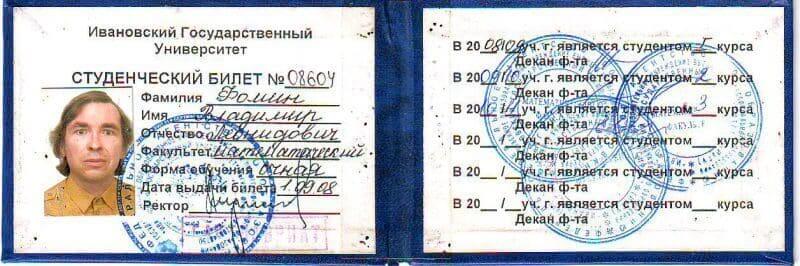 Ивановский Государственный
Университет
СТУДЕНЧЕСКИЙ БИЛЕТ № 08604
Фамилия Фомин
Имя Владимир
Отчество Леонидович
Факультет математический
Форма обучения очная
Дата выдачи билета 1.09.08
Ректор
В 2008/09 уч. г. является студентом I курса
Декан ф-та
В 2009/10 уч. г. является студентом 2 курса
Декан ф-та
В 2010/11 уч. г. является студентом 3 курса
Декан ф-та
В 20__/__уч. г. является студентом___курса
Декан ф-та
В 20__/__уч. г. является студентом___курса
Декан ф-та